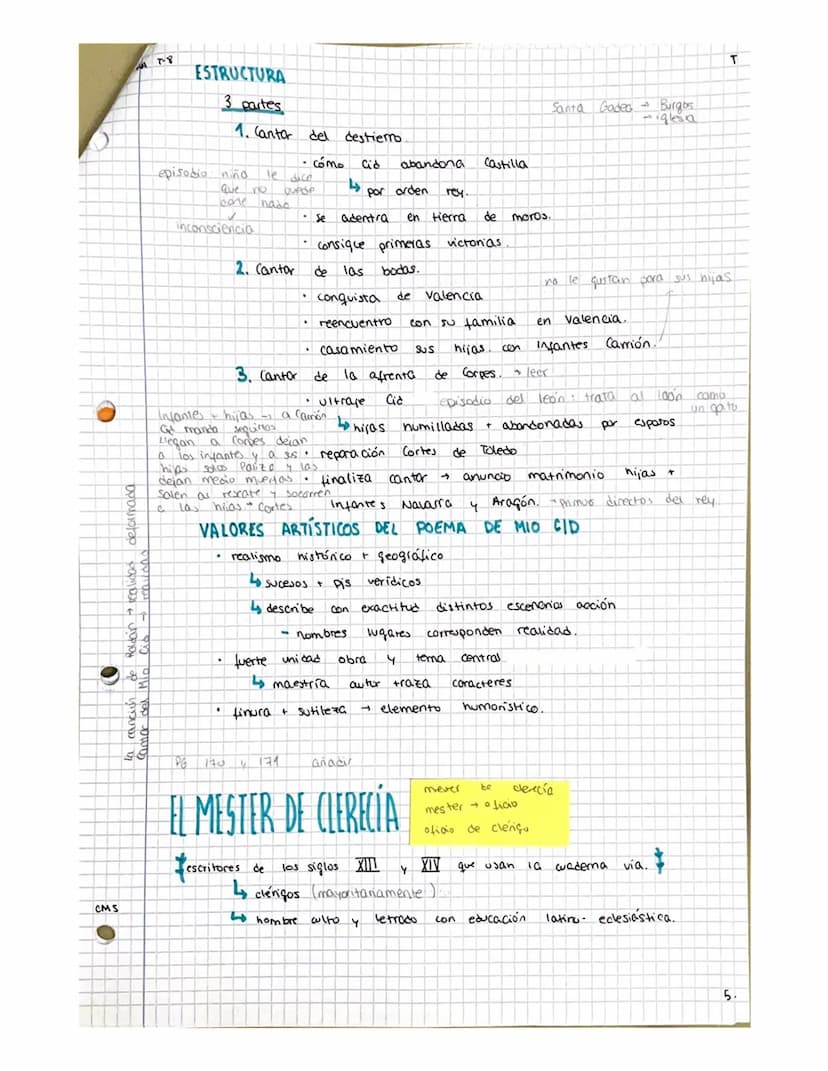 T-8
T
ESTRUCTURA
3 partes
Santa Gadea → Burgos
→ iglesia
1. Cantar del destierro.
· cómo Cid abandona Castilla
↳ por orden rey.
episodio niña le dice
que no puede
darle nada
↙
inconsciencia
· se adentra en tierra de moros.
· consigue primeras victorias.
2. Cantar de las bodas.
no le gustan para sus hijas
· conquista de Valencia
· reencuentro con su familia en Valencia.
· casamiento sus hijas. con Infantes Carrión.
3. Cantar de la afrenta de Corpes. → leer
· ultraje Cid
episodio del león: trata al león como
un gato
↳ hijas humilladas + abandonadas por esposos
Infantes + hijas → a Carrión
Cid manda
llegan a Corpes dejan
a los infantes y a sus
hijas solos y las
dejan medio muertas
salen al rescate y socorren
a las hijas → Cortes
· reparación Cortes de Toledo
· finaliza cantar → anuncio matrimonio hijas +
Infantes Navarra y Aragón. → primos directos del rey
VALORES ARTÍSTICOS DEL POEMA DE MIO CID
· realismo histórico + geográfico
↳ sucesos + pjs verídicos
↳ describe con exactitud distintos escenarios acción
- nombres lugares corresponden realidad.
· fuerte unidad obra y tema central
↳ maestría autor traza caracteres
· finura + sutileza → elemento humorístico.
la canción de Roldán → realidad deformada
Cantar del Mío Cid → realidad
PG 170 y 171 añadir
EL MESTER DE CLERECÍA
mester de clerecía
mester → oficio
oficio de clérigo
escritores de los siglos XIII y XIV que usan la cuaderna vía.
↳ clérigos (mayoritariamente)
↳ hombre culto y letrado con educación latino-eclesiástica.
CMS
5.